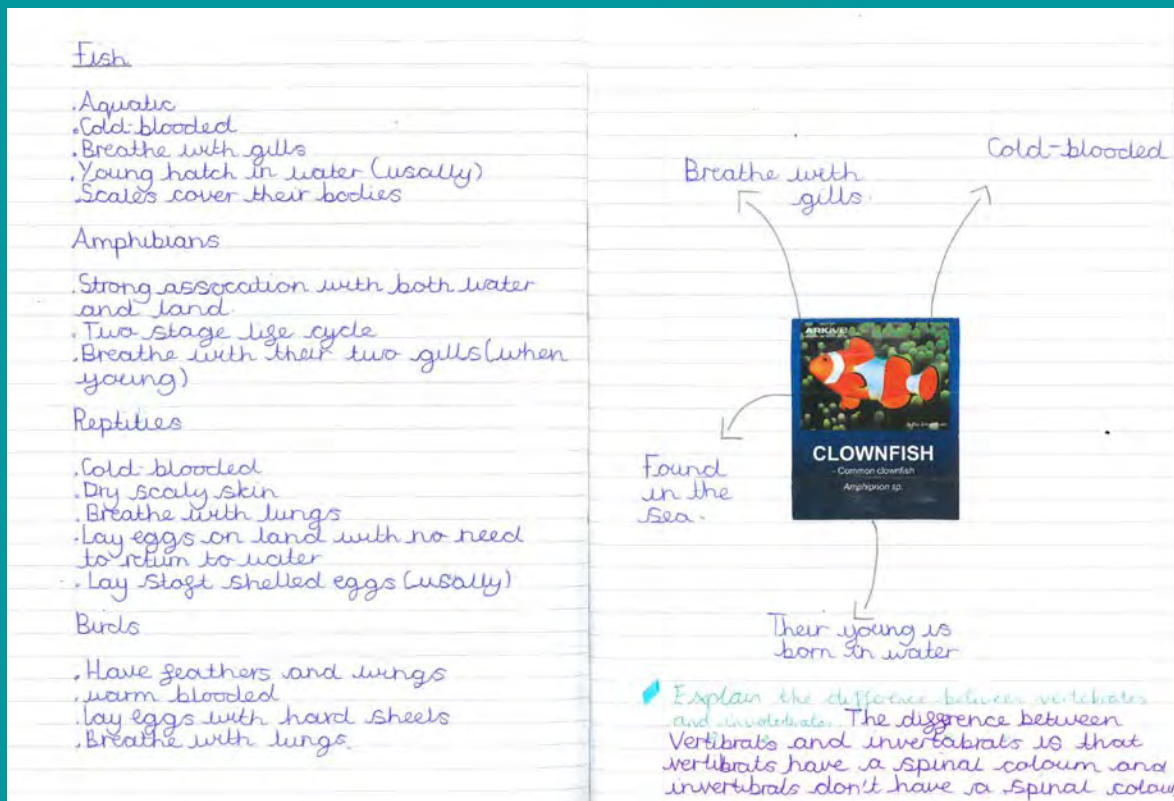 Fish
.Aquatic
.Cold-blooded
.Breathe with gills
.Young hatch in water (usally)
.Scales cover their bodies
Amphibians
.Strong assocation with both water
and land.
.Two stage life cycle
.Breathe with their two gills (when
young)
Reptities
.Cold-blooded
.Dry scaly skin
.Breathe with lungs
.Lay eggs on land with no need
to return to water
.Lay stoft shelled eggs (usally)
Birds
.Have feathers and wings
.warm blooded
.Lay eggs with hard sheels
.Breathe with lungs.
Breathe with
gills.
Cold-blooded
ARKIVE
CLOWNFISH
- Common clownfish
Amphiprion sp.
Found
in the
sea.
Their young is
born in water
Explain the difference between vertebrates
and The diffrence between
Vertibrats and invertabrats is that
vertibrats have a spinal coloum and
invertibrals don't have a spinal colou